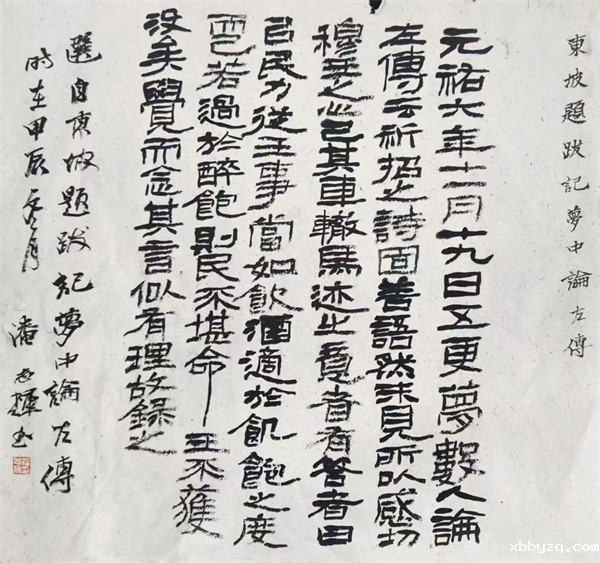 東坡題跋記夢中論左傳
元祐六年十一月十九日五更夢數人論
左傳云祈招之詩固善語然未見所以感切
穆王之心已其車轍馬迹之意者有答者曰
以民力從王事當如飲酒適於飢飽之度
而已若過於醉飽則民不堪命王不獲
没矣覺而念其言似有理故錄之
選自東坡題跋記夢中論左傳
時在甲辰 月 潘 輝书
www.xbbyzq.com